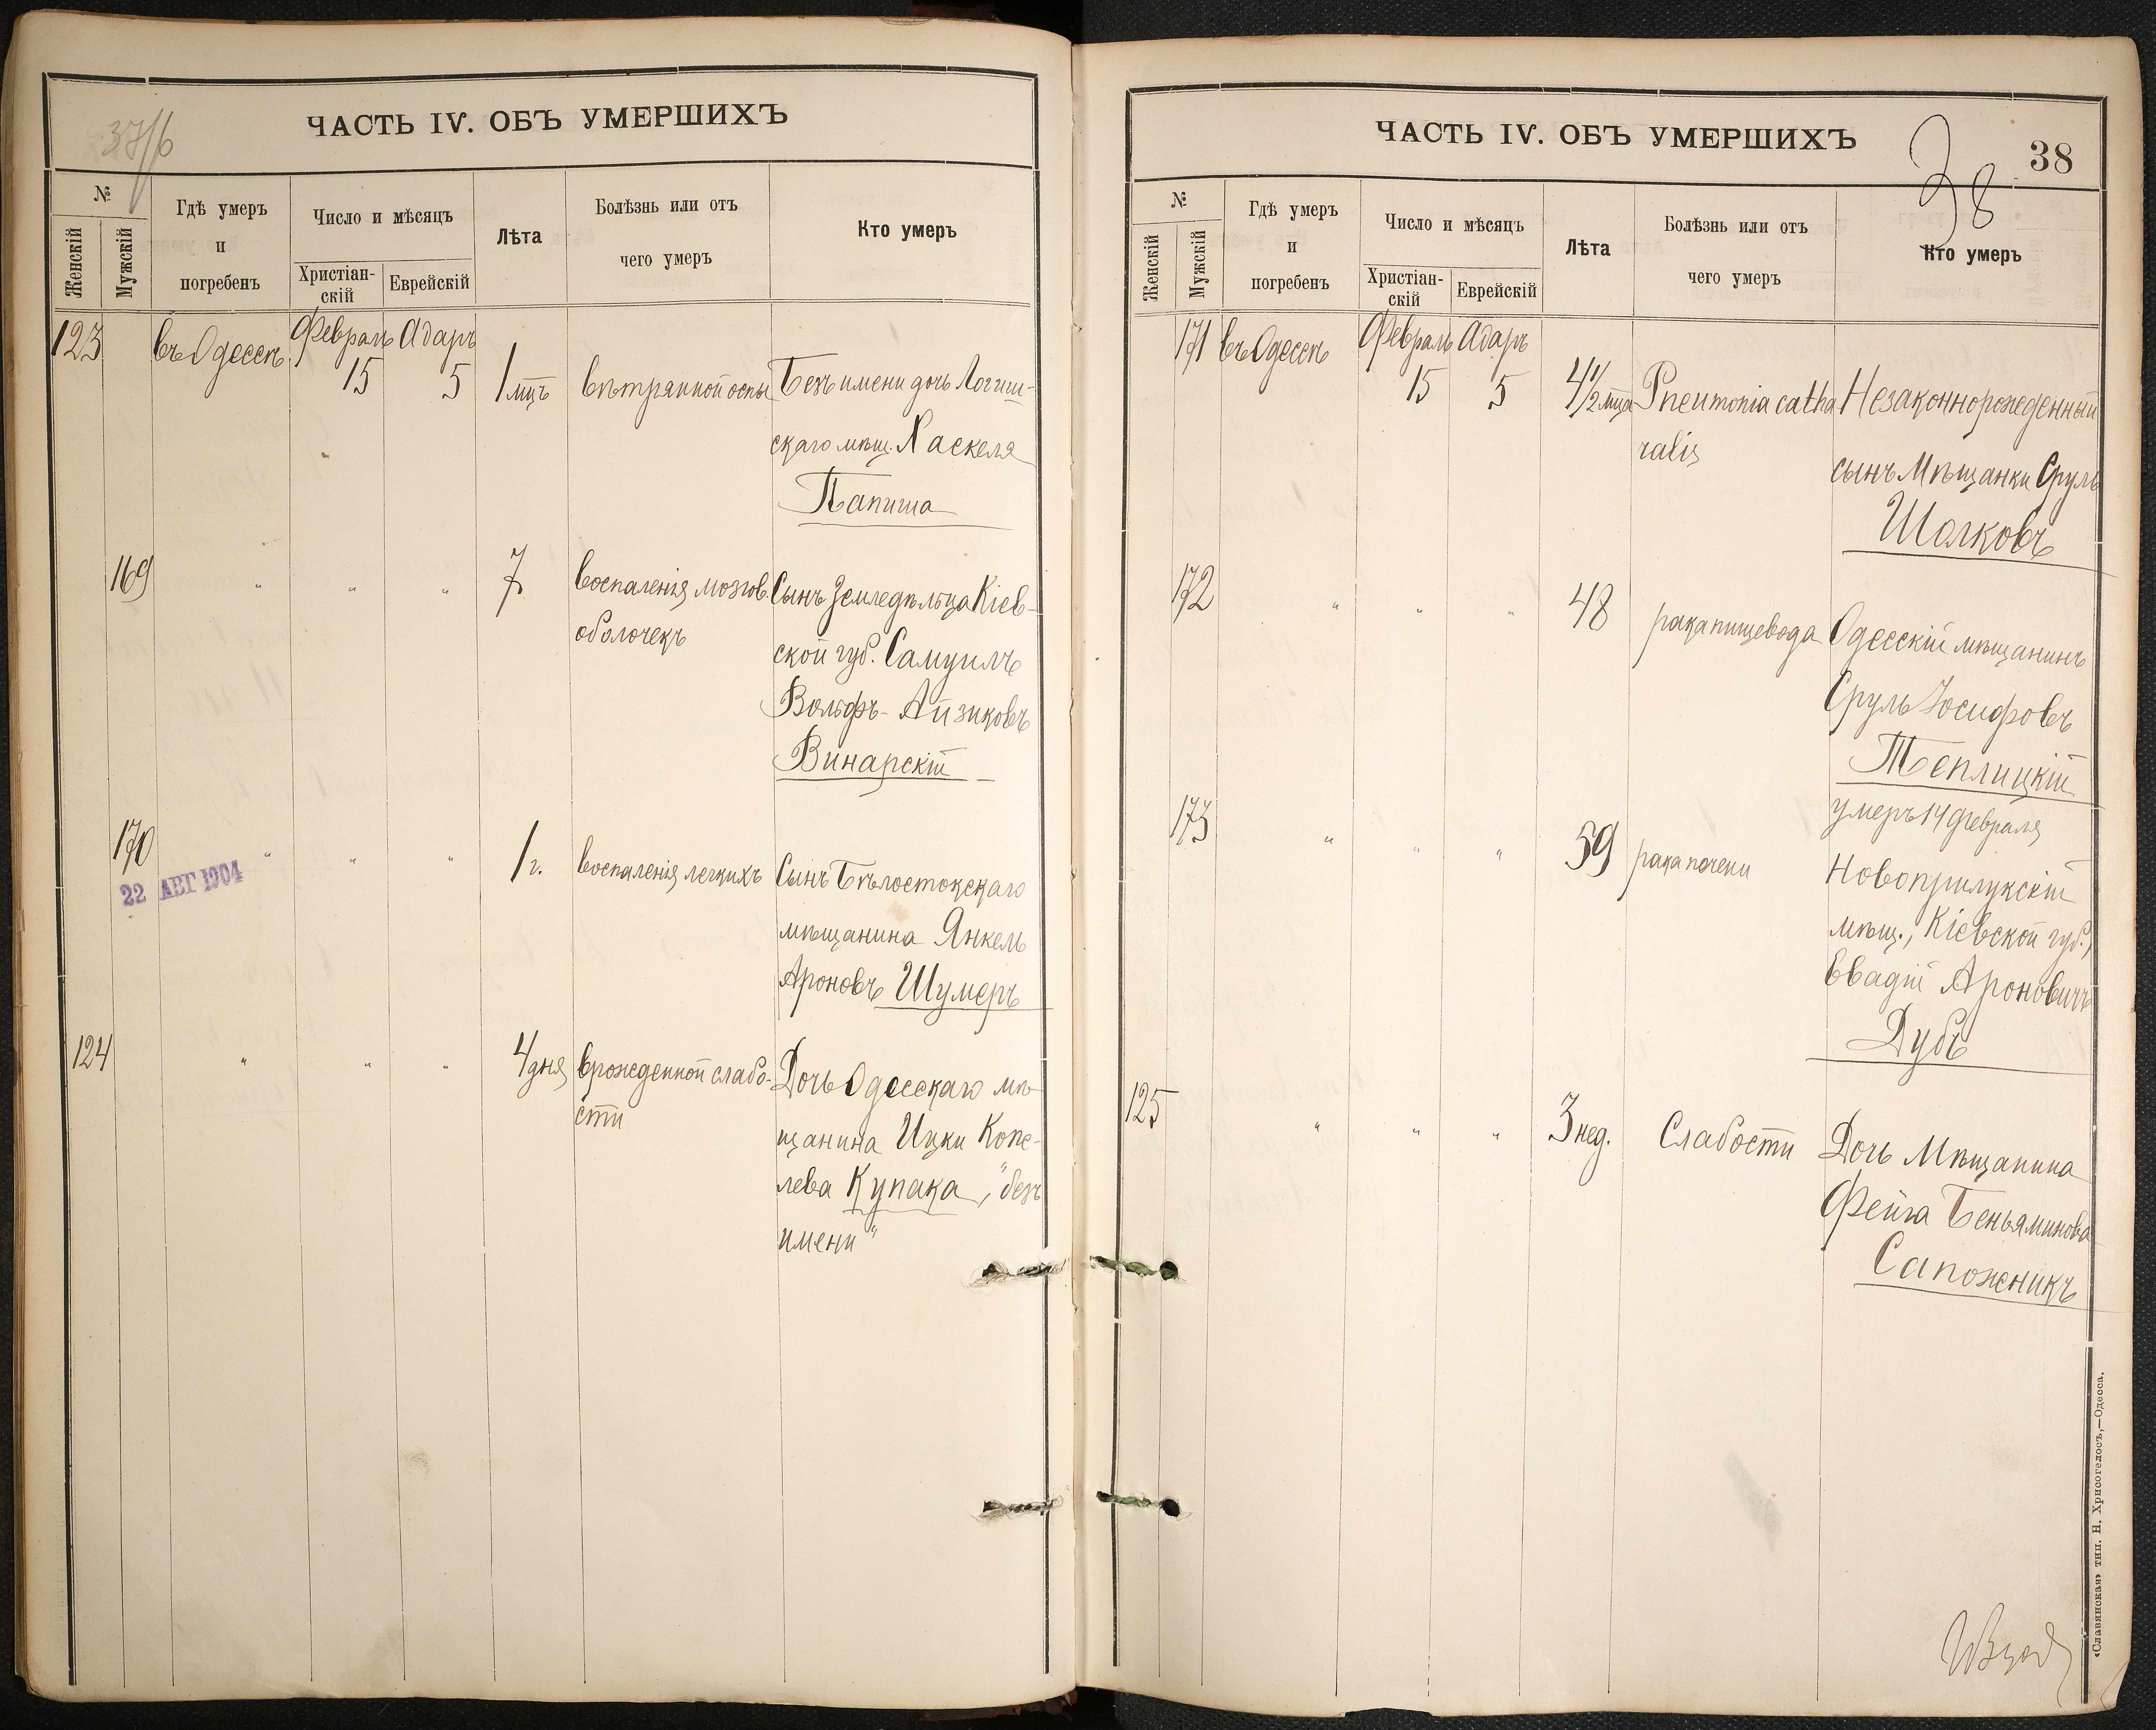 37/6
ЧАСТЬ IV. ОБЪ УМЕРШИХЪ
№
Женскій
Мужскій
Гдѣ умеръ
и
погребенъ
Число и мѣсяцъ
Христіан-
скій
Еврейскій
Лѣта
Болѣзнь или отъ
чего умеръ
Кто умеръ
123 въ Одессѣ Февраль Адаръ
15 5 1 мцъ вѣтрянной оспы Безъ имени дочь Логиш-
скаго мѣщ. Хаскеля
Папиша
169 " " " 7 воспаленія мозгов. Сынъ Земледѣльца Кіев-
оболочекъ
ской губ. Самуилъ
Вольфъ- Айзиковъ
Винарскій
170 " " " 1 г. воспаленія легкихъ Сынъ Бѣлостокскаго
22 АВГ 1904
мѣщанина Янкель
Ароновъ Шумеръ
124 " " " 4 дня врожденной слабо- Дочь Одесскаго мѣ-
сти
щанина Ицки Копе-
лева Купака, "безъ
имени"
ЧАСТЬ IV. ОБЪ УМЕРШИХЪ
38
38
№
Женскій
Мужскій
Гдѣ умеръ
и
погребенъ
Число и мѣсяцъ
Христіан-
скій
Еврейскій
Лѣта
Болѣзнь или отъ
чего умеръ
Кто умеръ
171 въ Одессѣ Февраль Адаръ
15 5 4 1/2 мца Pneumonia catha Незаконнорожденный
ralis
сынъ Мѣщанки Сруль
Шолковъ
172 " " " 48 рака пищевода Одесскій мѣщанинъ
Сруль Іосифовъ
Теплицкій
умеръ 14 февраля
173 " " " 59 рака печени Новоприлукскій
мѣщ., Кіевской губ.,
Евадій Ароновичъ
Дубъ
125 " " " 3 нед. Слабости Дочь Мѣщанина
Фейга Беньяминова
Сапожникъ
«Славянская» тип. Н. Хрисогелосъ,—Одесса.